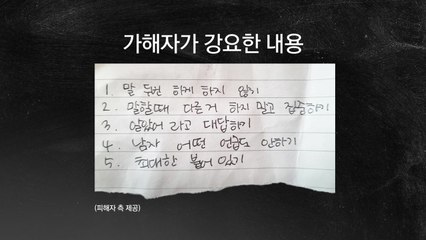 가해자가 강요한 내용
1. 말 두번 하게 하지 않기
2. 말할때 다른거 하지 말고 집중하기
3. 알았어 라고 대답하기
4. 남자 어떤 언급도 안하기
5. 최대한 붙어 있기
(피해자 측 제공)